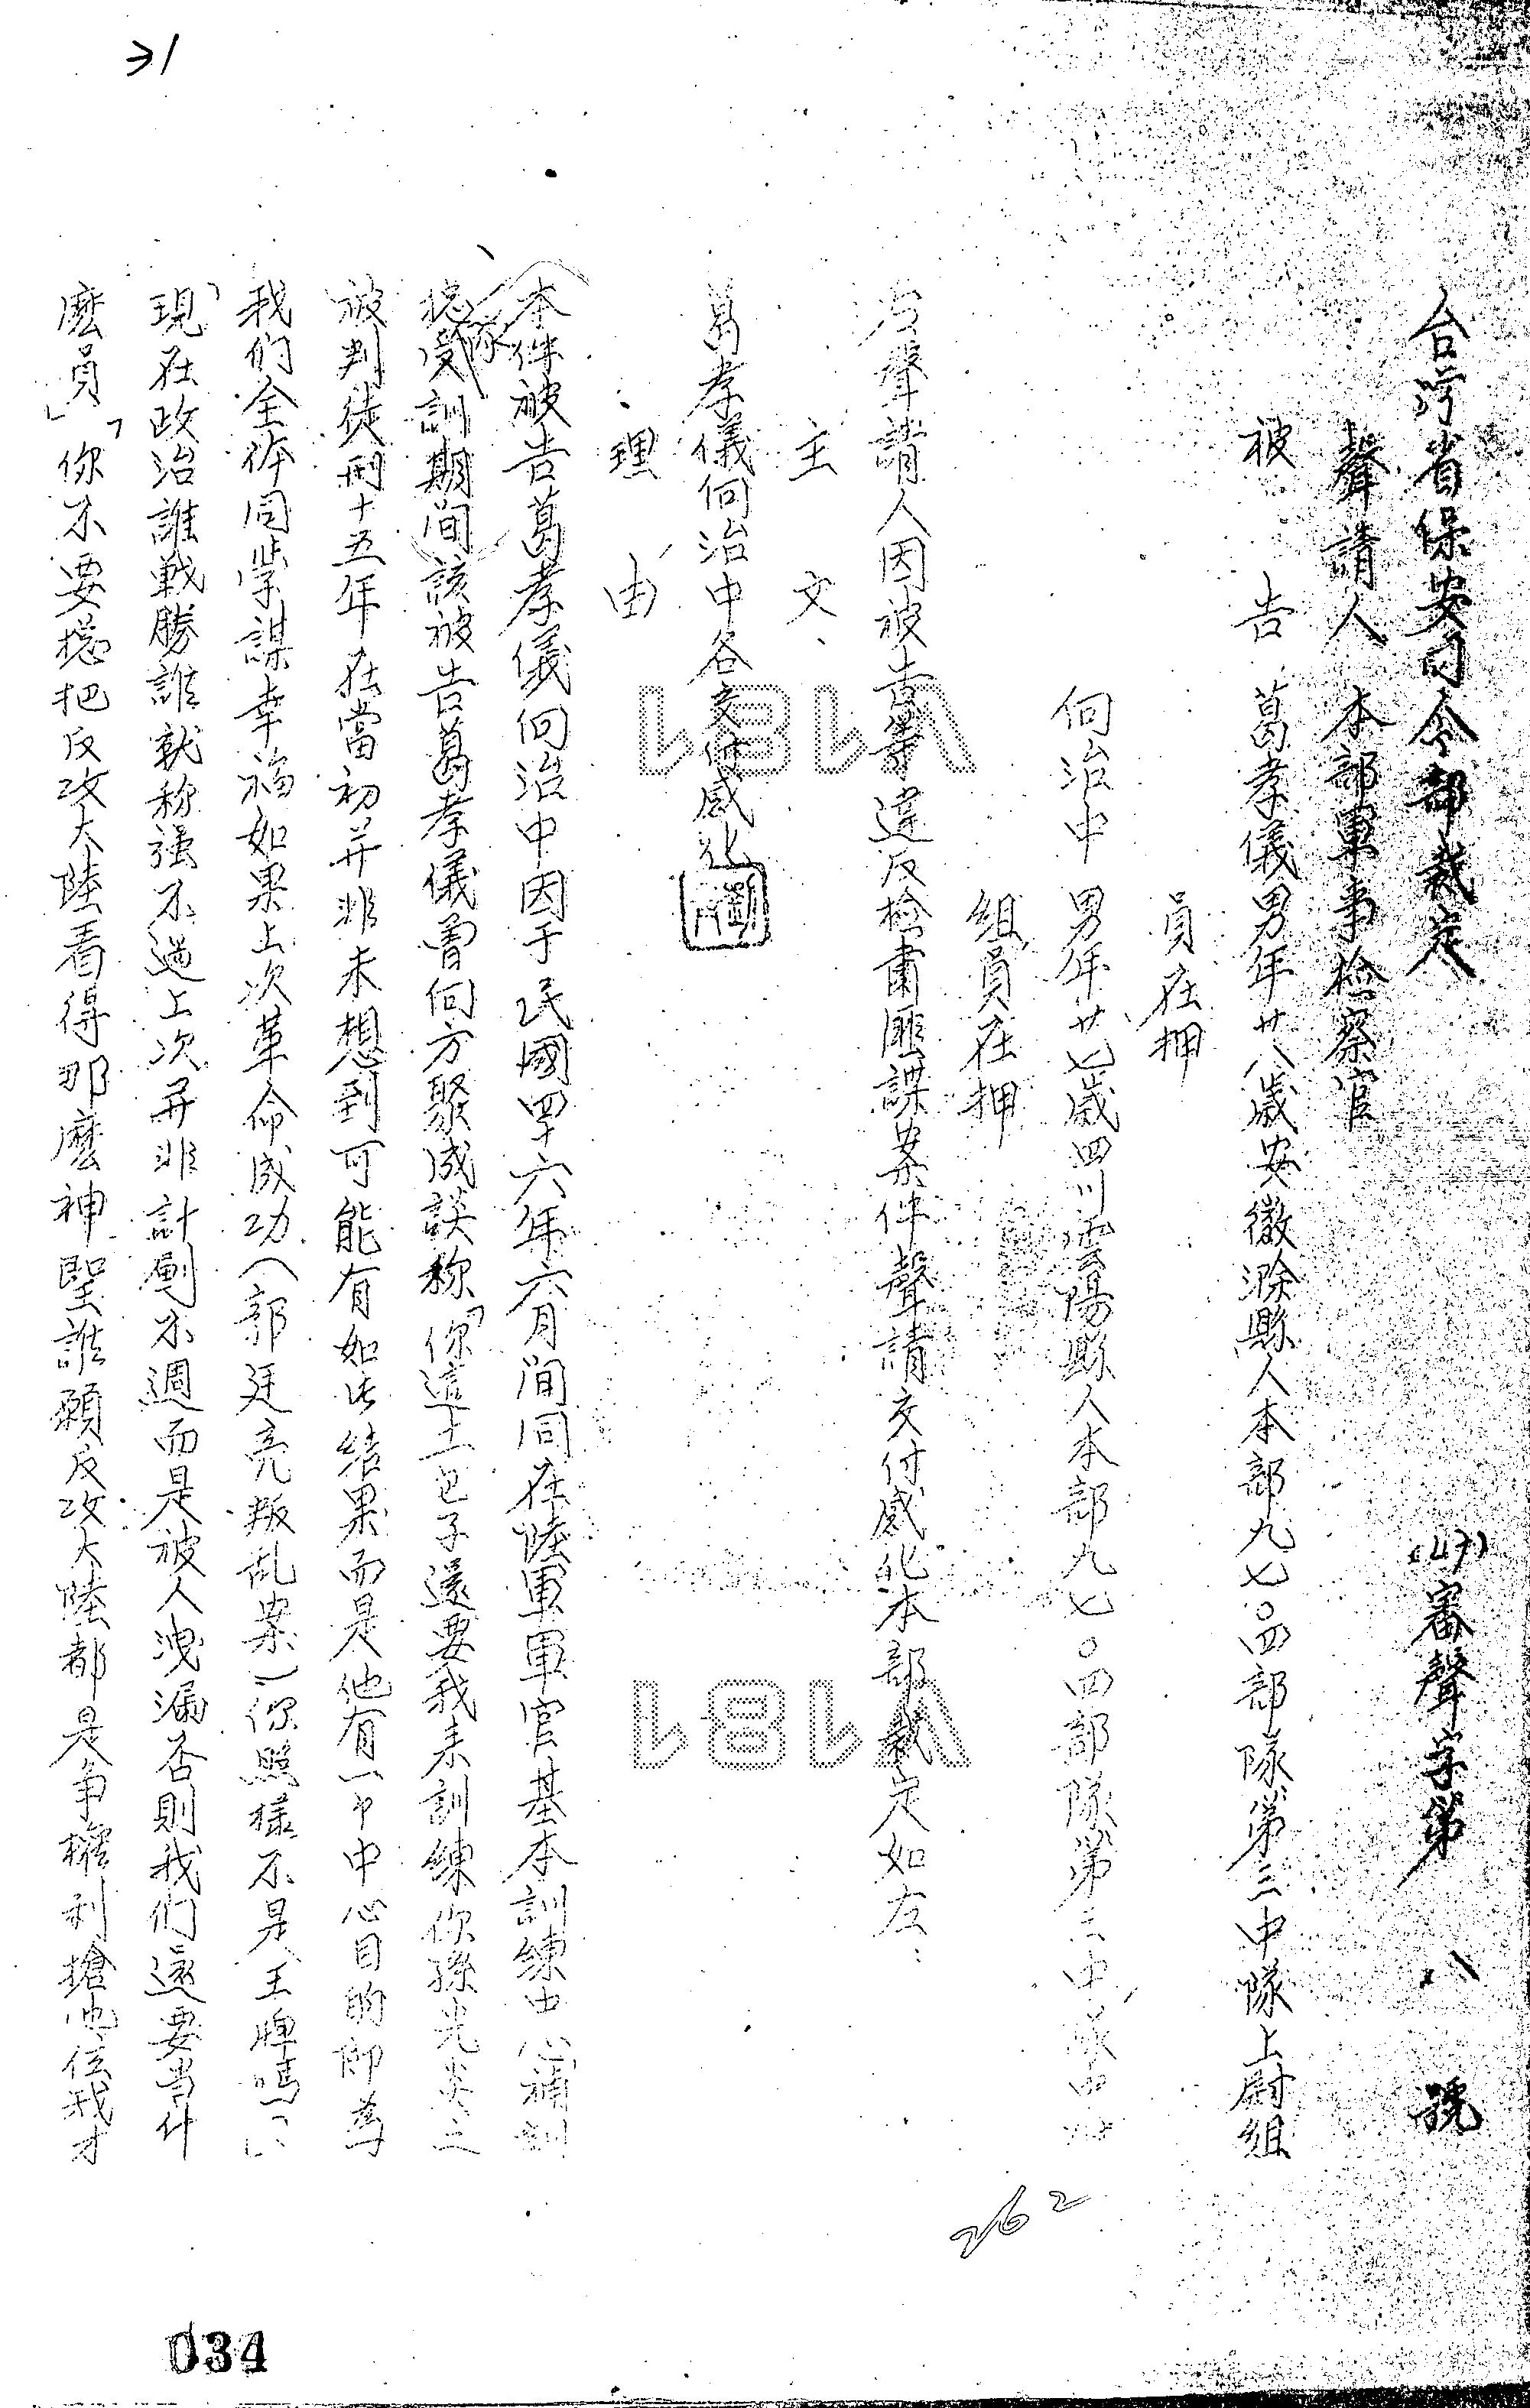 台灣省保安司令部裁定
(47)審聲字第 八 號
聲請人 本部軍事檢察官
被告 葛孝儀 男年廿八歲安徽滁縣人本部九七〇四部隊第三中隊上尉組
員在押
向治中 男年廿七歲四川雲陽縣人本部九七〇四部隊第三中隊中尉
組員在押
右聲請人因被告等違反檢肅匪諜案件聲請交付感化本部裁定如左：
主文、
葛孝儀向治中各交付感化
理由
本件被告葛孝儀向治中因于民國四十六年六月間同在陸軍軍官基本訓練中心補訓
總隊受訓期间該被告葛孝儀曾向方聚成談称「你這土包子還要我來訓練你孫光炎之
被判徒刑十五年在當初并非未想到可能有如此结果而是他有一中心目的即為
我们全体同学謀幸福如果上次革命成功（郭廷亮叛乱案）你照樣不是王牌嗎」、「
現在政治誰戰勝誰就称强不過上次并非計劃不週而是被人洩漏否則我们還要当什
麽員」「你不要總把反攻大陸看得那麽神聖誰願反攻大陸都是爭權利搶地位我才
31
V181
V181
262
034